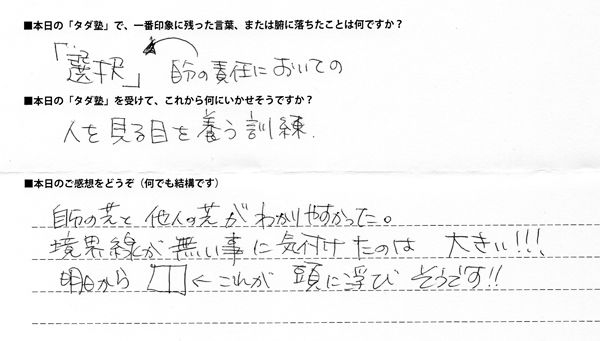 ■本日の「タダ塾」で、一番印象に残った言葉、または腑に落ちたことは何ですか？
「選択」 自分の責任においての
■本日の「タダ塾」を受けて、これから何にいかせそうですか？
人を見る目を養う訓練.
■本日のご感想をどうぞ（何でも結構です）
自分の芝と他人の芝がわかりやすかった。
境界線が無い事に気付けたのは 大きい!!!
明日から ←これが 頭に浮び そうです!!